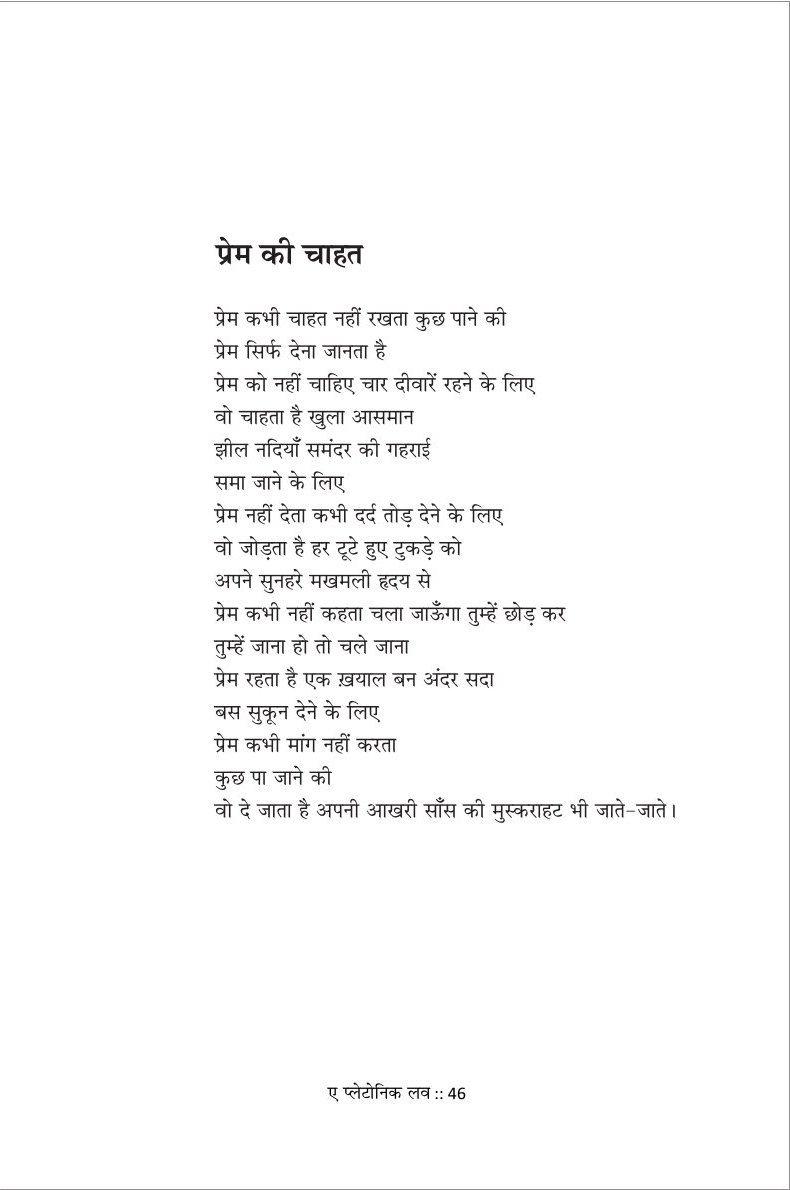 प्रेम की चाहत
प्रेम कभी चाहत नहीं रखता कुछ पाने की
प्रेम सिर्फ देना जानता है
प्रेम को नहीं चाहिए चार दीवारें रहने के लिए
वो चाहता है खुला आसमान
झील नदियाँ समंदर की गहराई
समा जाने के लिए
प्रेम नहीं देता कभी दर्द तोड़ देने के लिए
वो जोड़ता है हर टूटे हुए टुकड़े को
अपने सुनहरे मखमली हृदय से
प्रेम कभी नहीं कहता चला जाऊँगा तुम्हें छोड़ कर
तुम्हें जाना हो तो चले जाना
प्रेम रहता है एक ख़याल बन अंदर सदा
बस सुकून देने के लिए
प्रेम कभी मांग नहीं करता
कुछ पा जाने की
वो दे जाता है अपनी आखरी साँस की मुस्कराहट भी जाते-जाते।
ए प्लेटोनिक लव :: 46